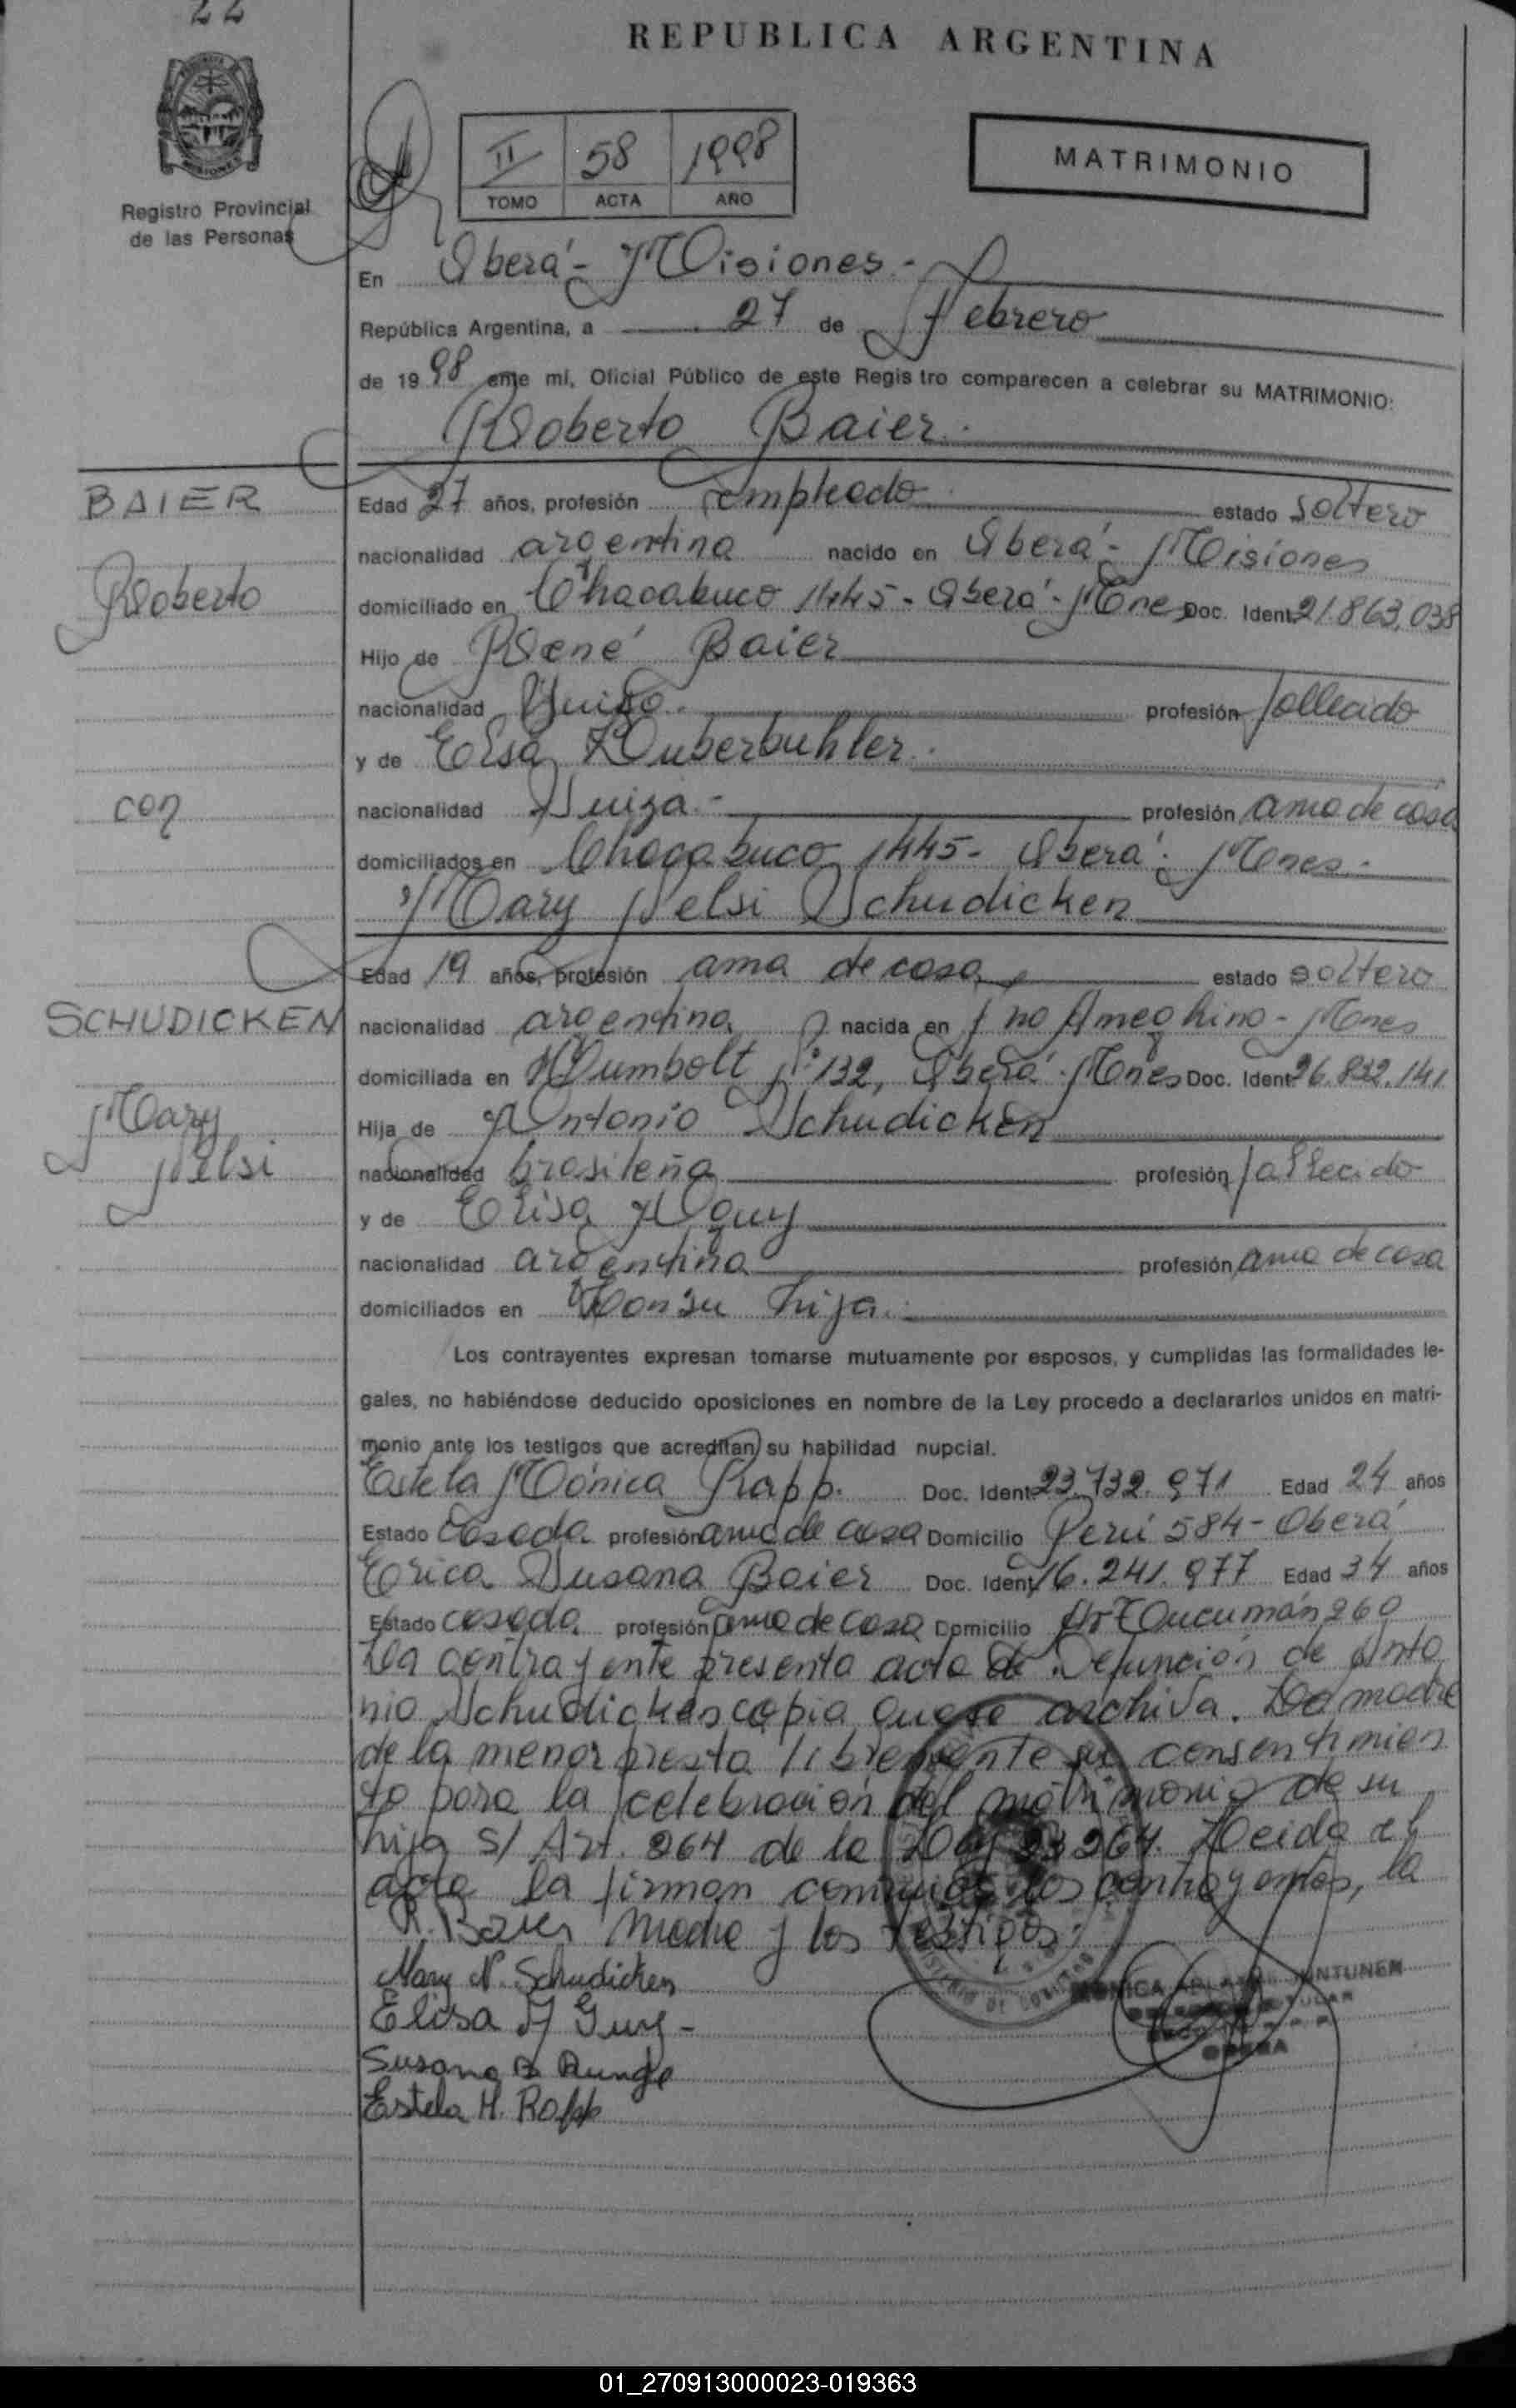 22
REPUBLICA ARGENTINA
II 58 1998
TOMO ACTA AÑO
MATRIMONIO
Registro Provincial
de las Personas
En Oberá - Misiones -
República Argentina, a 27 de Febrero
de 1998 ante mí, Oficial Público de este Registro comparecen a celebrar su MATRIMONIO:
Roberto Baier.
BAIER
Roberto
con
SCHUDICKEN
Mary
Nelsi
Edad 27 años, profesión empleado estado soltero
nacionalidad argentina nacido en Oberá - Misiones
domiciliado en Chacabuco 1445 - Oberá - Mnes Doc. Ident. 21.863.038
Hijo de René Baier
nacionalidad Suiza. profesión fallecido
y de Elsa Zuberbuhler.
nacionalidad Suiza - profesión ama de casa
domiciliados en Chacabuco 1445 - Oberá - Mnes.
Mary Nelsi Schudicken
Edad 19 años, profesión ama de casa estado soltero
nacionalidad argentina nacida en Fno Ameghino - Mnes
domiciliada en Humbolt Nº 132, Oberá - Mnes Doc. Ident. 26.832.141
Hija de Antonio Schudicken
nacionalidad brasileña profesión fallecido
y de Elisa Aguy
nacionalidad argentina profesión ama de casa
domiciliados en Con su hija.
Los contrayentes expresan tomarse mutuamente por esposos, y cumplidas las formalidades le-
gales, no habiéndose deducido oposiciones en nombre de la Ley procedo a declararlos unidos en matri-
monio ante los testigos que acreditan su habilidad nupcial.
Estela Mónica Rapp. Doc. Ident. 23.732.971 Edad 24 años
Estado Casada profesión ama de casa Domicilio Perú 584 - Oberá
Erica Susana Baier Doc. Ident. 16.241.977 Edad 34 años
Estado casada profesión ama de casa Domicilio Tucumán 260
La contrayente presenta acta de Defunción de Anto
nio Schudicken copia que se archiva. La madre
de la menor presta libremente su consentimien
to para la celebración del matrimonio de su
hija s/ Art. 264 de la Ley 23264. Leida el
acta la firman conmigo los contrayentes, la
R. Baier madre y los testigos.
Mary N. Schudicken
Elisa Guy -
Susana B Runge
Estela M. Rapp
MONICA JUNTUNEN
OBERA
01_270913000023-019363